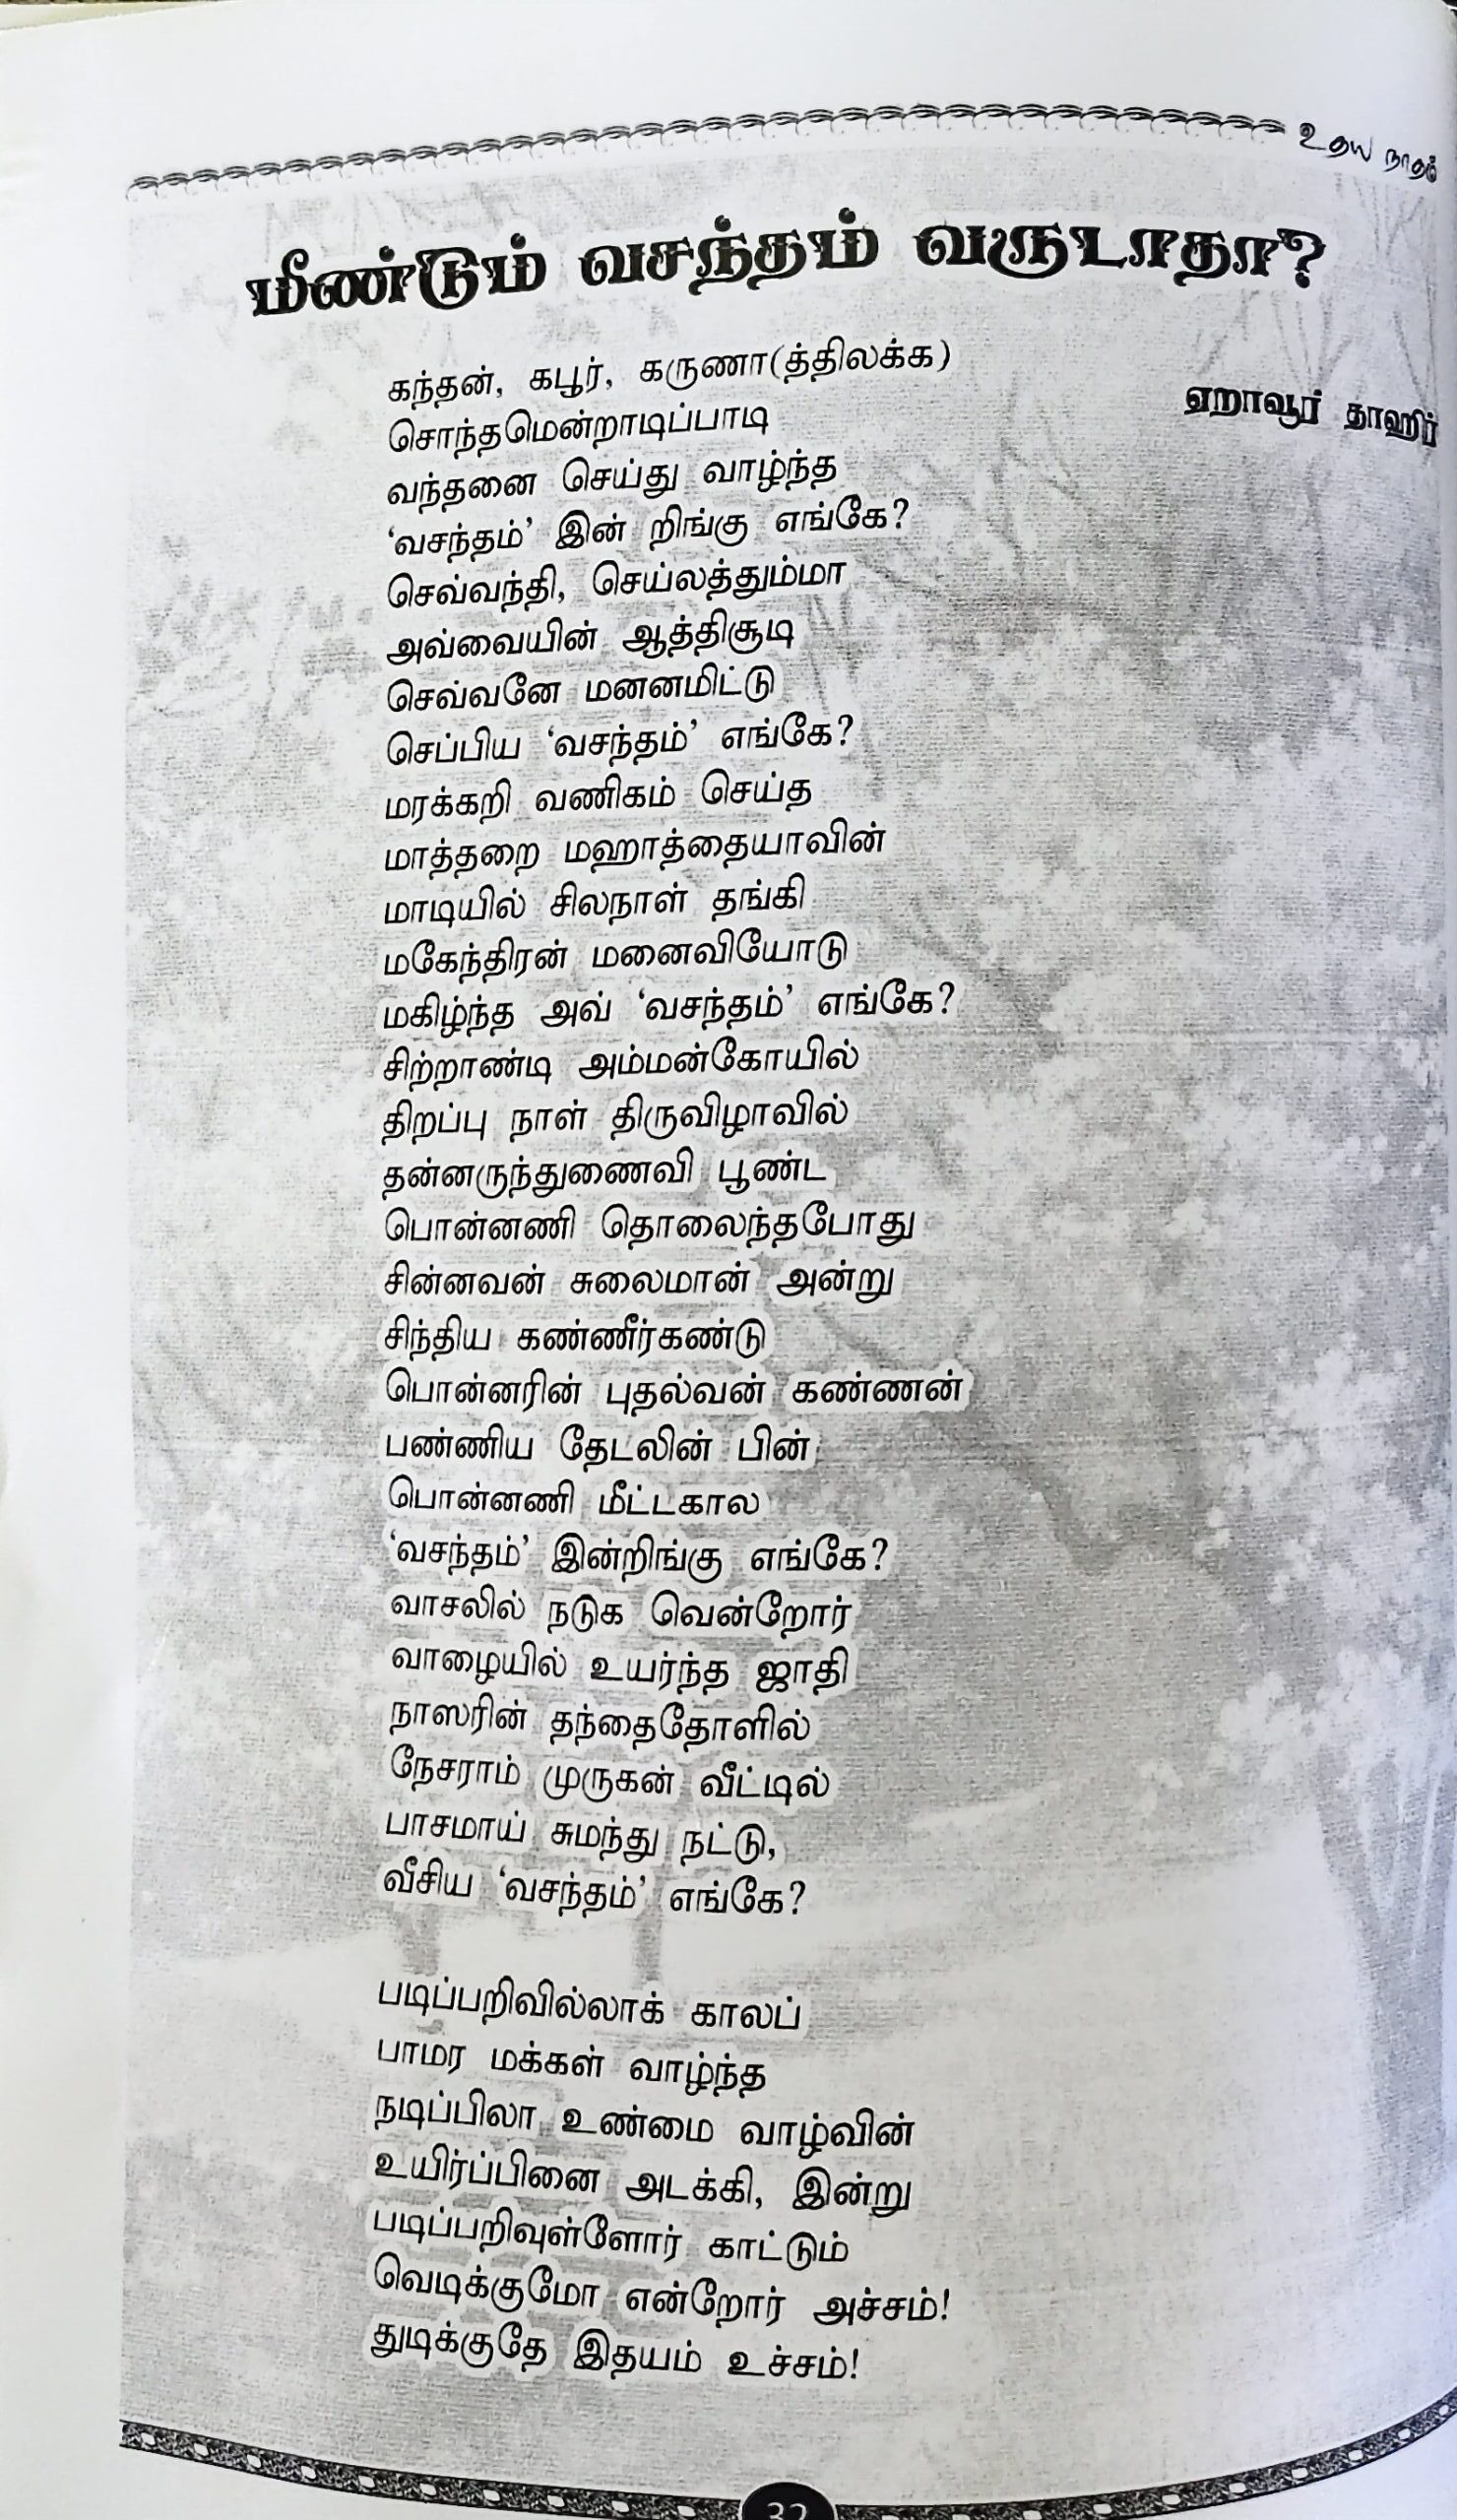 உதய நாதம்
மீண்டும் வசந்தம் வருடாதா?
ஏறாவூர் தாஹிர்
கந்தன், கபூர், கருணா(த்திலக்க)
சொந்தமென்றாடிப்பாடி
வந்தனை செய்து வாழ்ந்த
‘வசந்தம்’ இன் றிங்கு எங்கே?
செவ்வந்தி, செய்லத்தும்மா
அவ்வையின் ஆத்திசூடி
செவ்வனே மனனமிட்டு
செப்பிய ‘வசந்தம்’ எங்கே?
மரக்கறி வணிகம் செய்த
மாத்தறை மஹாத்தையாவின்
மாடியில் சிலநாள் தங்கி
மகேந்திரன் மனைவியோடு
மகிழ்ந்த அவ் ‘வசந்தம்’ எங்கே?
சிற்றாண்டி அம்மன்கோயில்
திறப்பு நாள் திருவிழாவில்
தன்னருந்துணைவி பூண்ட
பொன்னணி தொலைந்தபோது
சின்னவன் சுலைமான் அன்று
சிந்திய கண்ணீர்கண்டு
பொன்னரின் புதல்வன் கண்ணன்
பண்ணிய தேடலின் பின்
பொன்னணி மீட்டகால
‘வசந்தம்’ இன்றிங்கு எங்கே?
வாசலில் நடுக வென்றோர்
வாழையில் உயர்ந்த ஜாதி
நாஸரின் தந்தைதோளில்
நேசராம் முருகன் வீட்டில்
பாசமாய் சுமந்து நட்டு,
வீசிய ‘வசந்தம்’ எங்கே?
படிப்பறிவில்லாக் காலப்
பாமர மக்கள் வாழ்ந்த
நடிப்பிலா உண்மை வாழ்வின்
உயிர்ப்பினை அடக்கி, இன்று
படிப்பறிவுள்ளோர் காட்டும்
வெடிக்குமோ என்றோர் அச்சம்!
துடிக்குதே இதயம் உச்சம்!
32